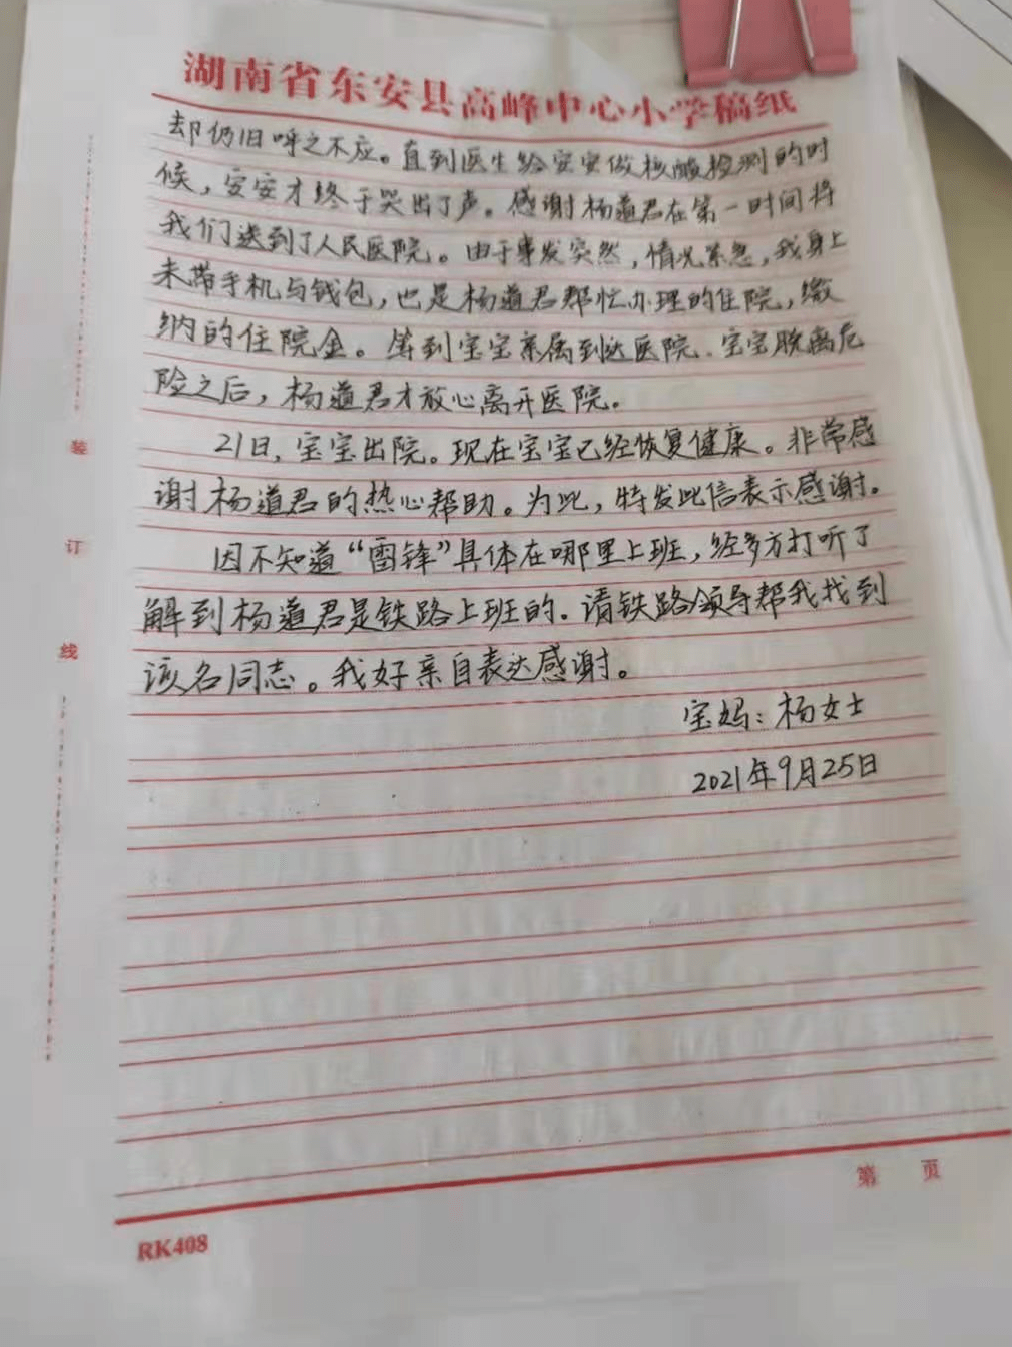 湖南省东安县高峰中心小学稿纸
却仍旧呼之不应。直到医生给安安做核酸检测的时
候，安安才终于哭出了声。感谢杨道君在第一时间将
我们送到了人民医院。由于事发突然，情况紧急，我身上
未带手机与钱包，也是杨道君帮忙办理的住院，缴
纳的住院金。等到宝宝亲属到达医院、宝宝脱离危
险之后，杨道君才放心离开医院。
21日，宝宝出院。现在宝宝已经恢复健康。非常感
谢杨道君的热心帮助。为此，特发此信表示感谢。
因不知道“雷锋”具体在哪里上班，经多方打听了
解到杨道君是铁路上班的。请铁路领导帮我找到
该名同志。我好亲自表达感谢。
宝妈：杨女士
2021年9月25日
装
订
线
第 页
RK408